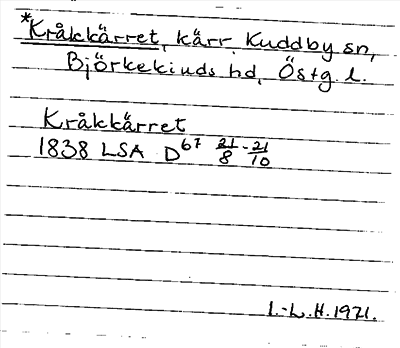 *Kråkkärret, kärr, Kuddby sn,
Björkekinds hd, Östg. l.
Kråkkärret
1838 LSA D67 21/8 - 21/10
I.-L. H. 1971.